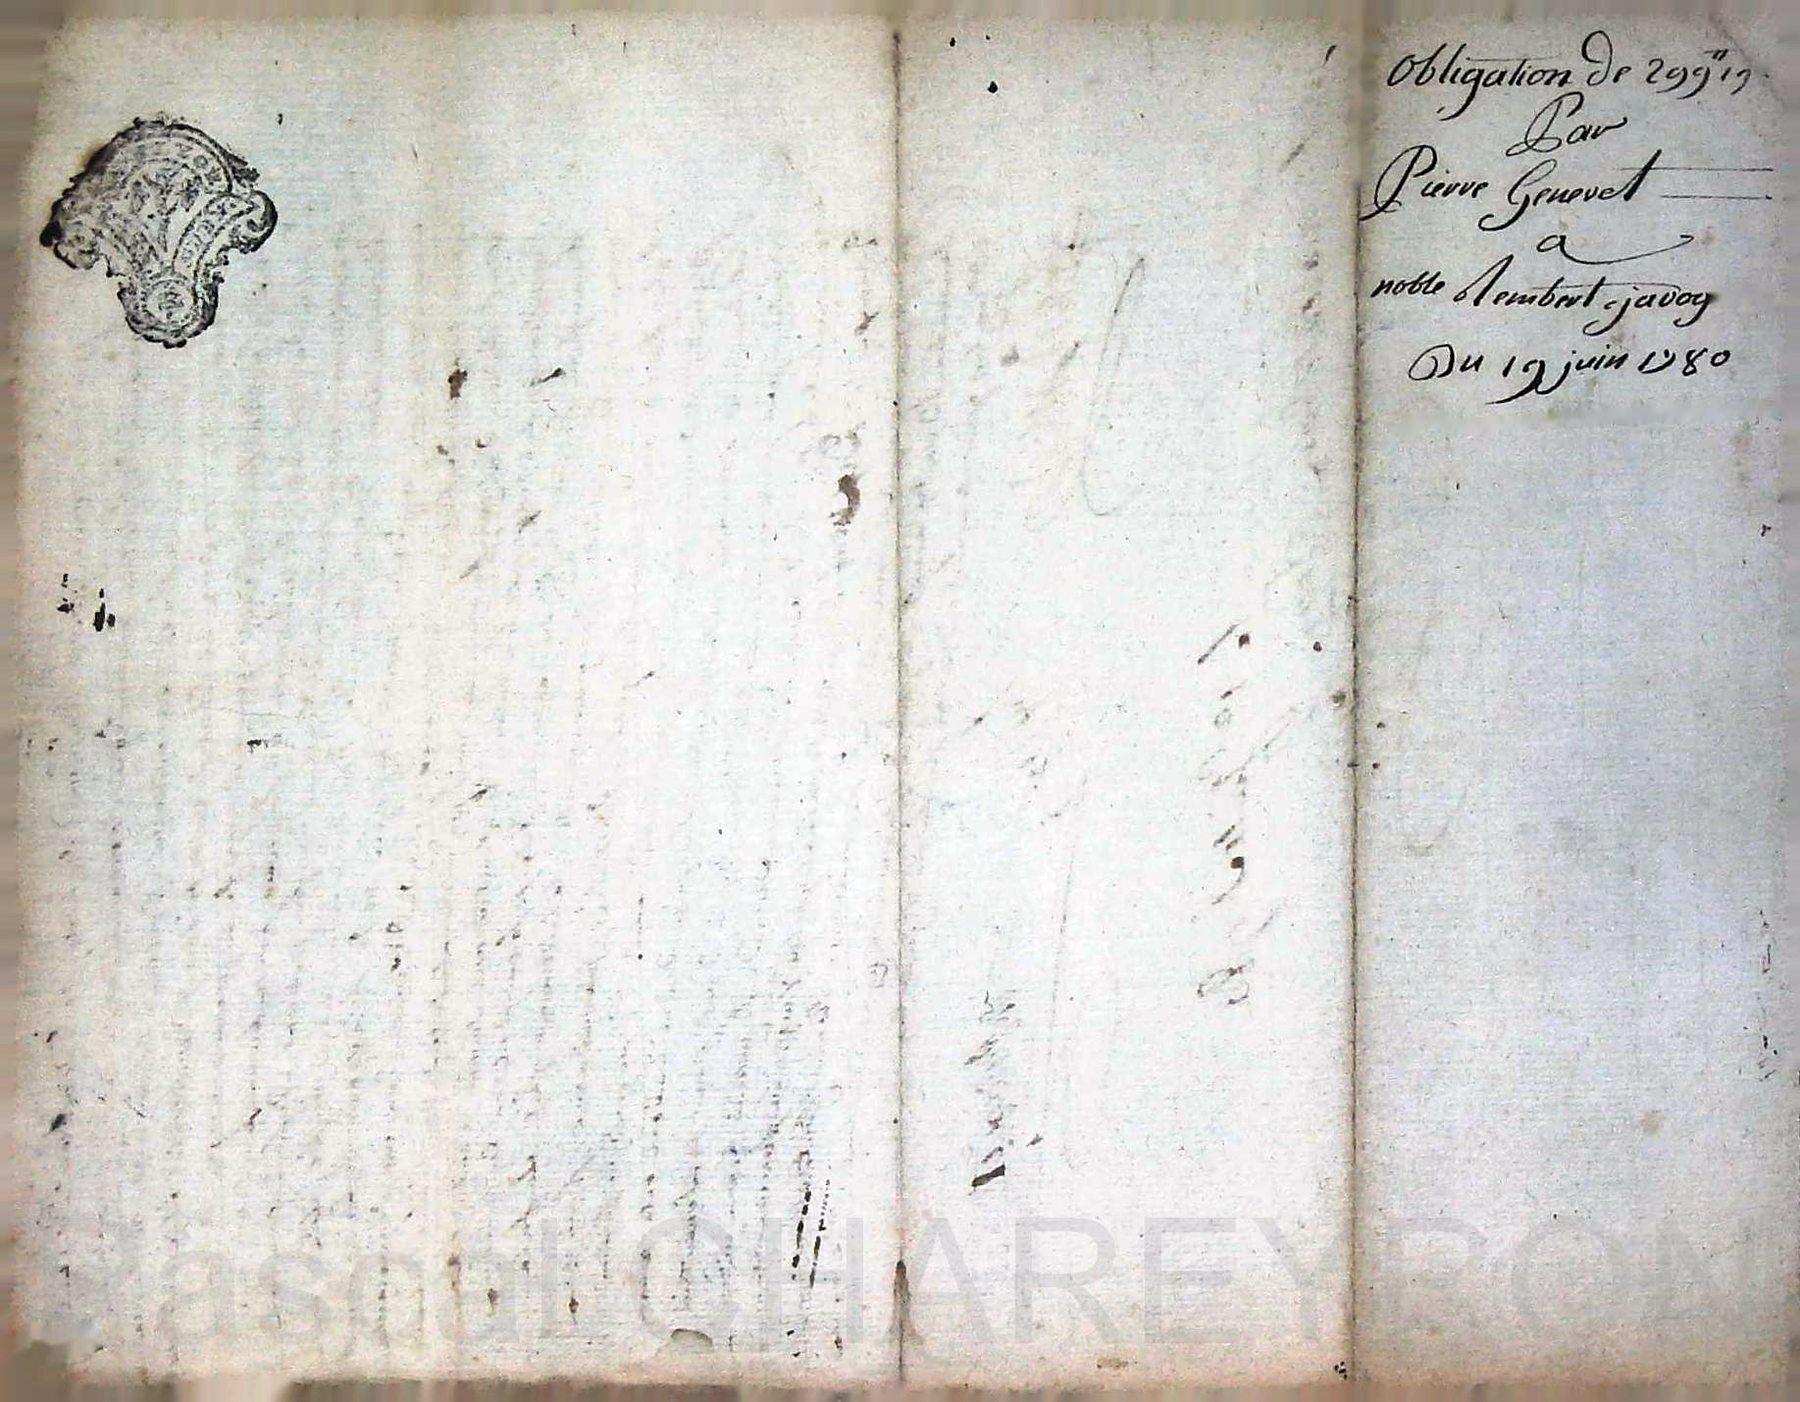 Obligation de 299" 19
Par
Pierre Genevet
a
noble rembert javog
Du 19 juin 1780
Pascal CHAREYRON